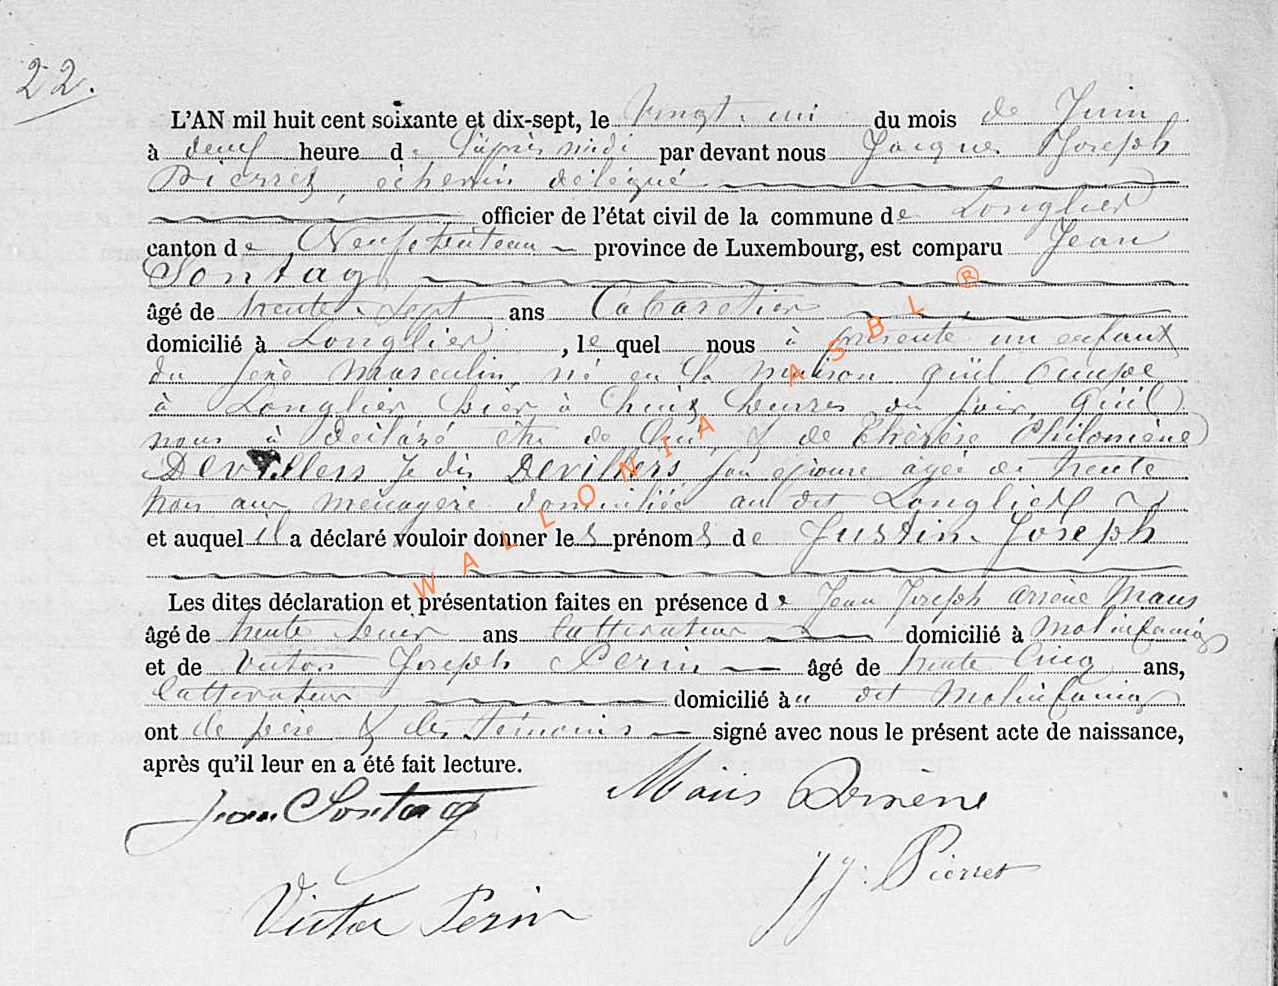 22.
L'AN mil huit cent soixante et dix-sept, le Vingt-un du mois de Juin
à deux heure de l'après midi par devant nous Jacques Joseph
Pierret, échevin délégué
officier de l'état civil de la commune de Longlier
canton de Neufchateau province de Luxembourg, est comparu Jean
Sontag
âgé de trente-Sept ans Cabaretier
domicilié à Longlier, le quel nous à présenté un enfant
du sexe masculin né en la maison qu'il occupe
à Longlier hier à huit heures du soir, qu'il
nous à déclaré être de lui, & de Thérèse Philomène
Devillers je dis Devillers, son épouse âgée de trente
trois ans ménagère domiciliée au dit Longlier
et auquel il a déclaré vouloir donner les prénoms de Justin Joseph
Les dites déclaration et présentation faites en présence de Jean Joseph Arsène Maus
âgé de trente ans cultivateur domicilié à Molinfaing
et de Victor Joseph Perin âgé de trente cinq ans,
cultivateur domicilié au dit Molinfaing
ont le père & les témoins signé avec nous le présent acte de naissance,
après qu'il leur en a été fait lecture.
Jean Sontag Maus Arsène
JJ. Pierret
Victor Perin
WALLONIA ASBL ®